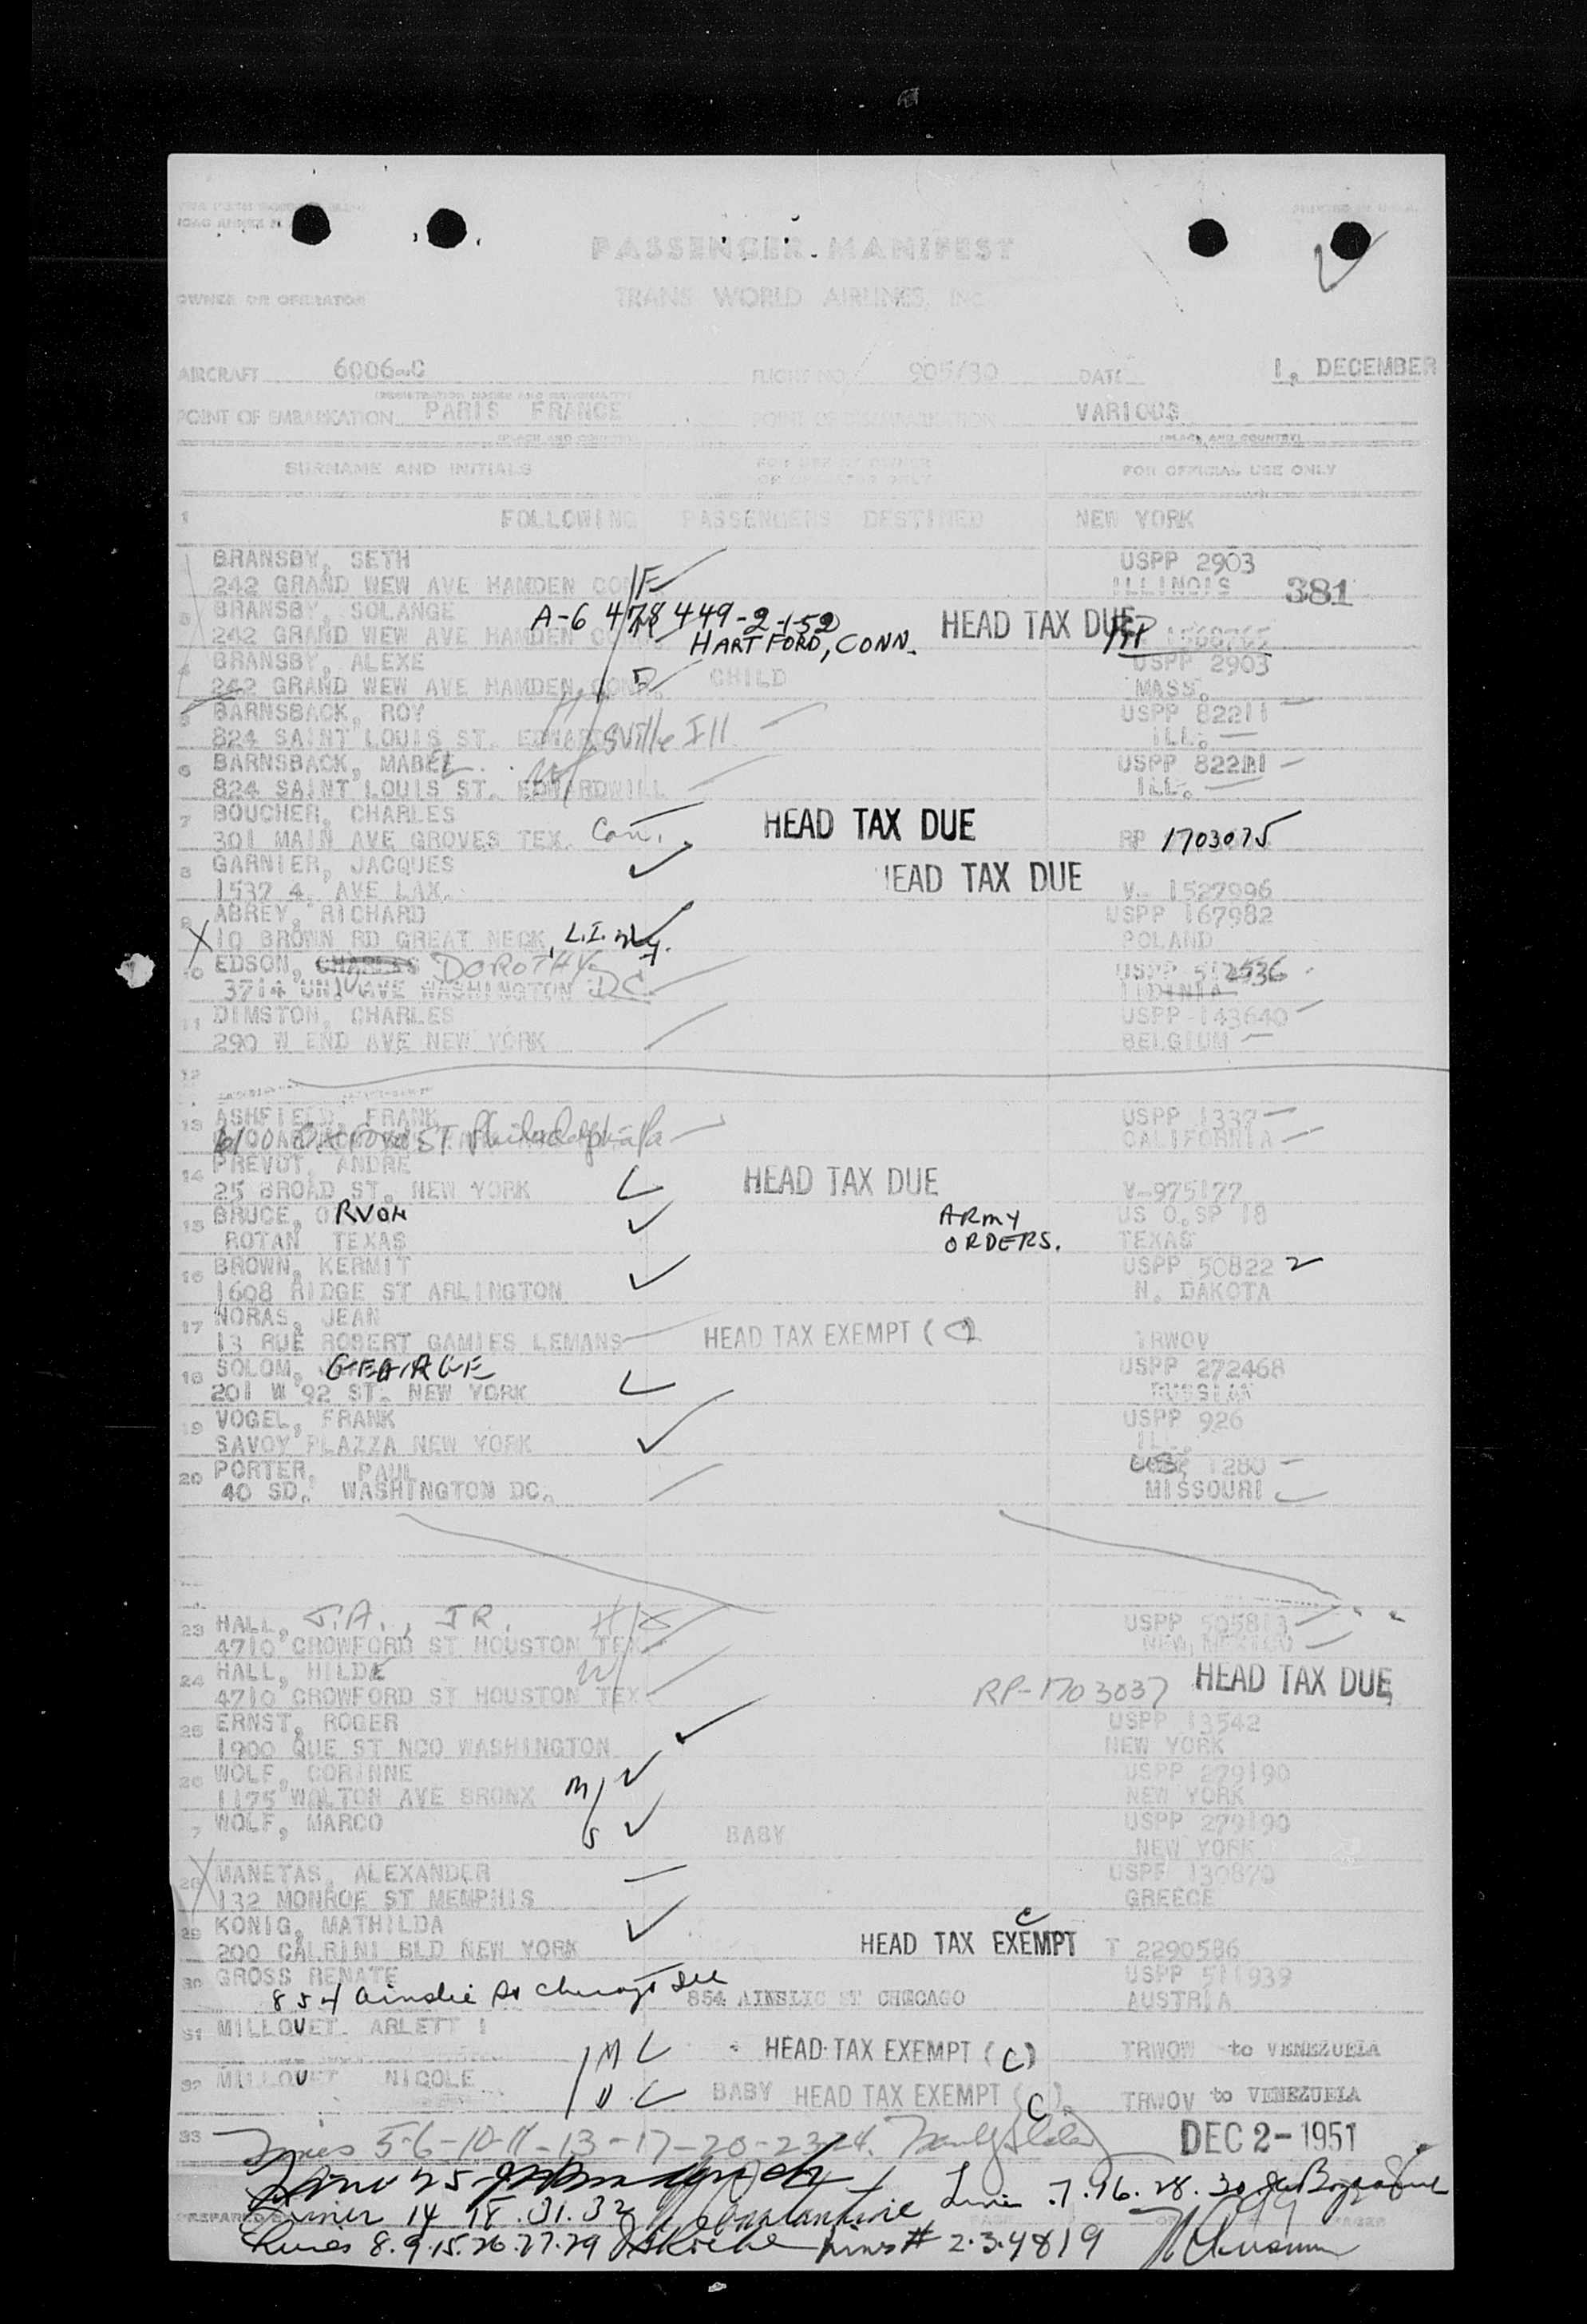 ICAO ANNEX 9
PASSENGER MANIFEST
OWNER OR OPERATOR TRANS WORLD AIRLINES, INC.
AIRCRAFT 6006-C FLIGHT NO. 905/30 DATE 1, DECEMBER
POINT OF EMBARKATION PARIS FRANCE POINT OF DISEMBARKATION VARIOUS
(PLACE AND COUNTRY) (PLACE AND COUNTRY)
SURNAME AND INITIALS FOR USE BY OWNER OR OPERATOR ONLY FOR OFFICIAL USE ONLY
1 FOLLOWING PASSENGERS DESTINED NEW YORK
BRANSBY, SETH USPP 2903
242 GRAND WEW AVE HAMDEN F ILLINOIS 381
3 BRANSBY, SOLANGE A-6 478 449-2-1-52 HEAD TAX DUE
242 GRAND WEW AVE HAMDEN HARTFORD, CONN. RP 1568765
4 BRANSBY, ALEXE USPP 2903
242 GRAND WEW AVE HAMDEN, CONN. D CHILD MASS.
5 BARNSBACK, ROY USPP 82211
824 SAINT LOUIS ST. EDWARDSVille Ill ILL.
6 BARNSBACK, MABEL USPP 82211
824 SAINT LOUIS ST. EDWARDWILL ILL.
7 BOUCHER, CHARLES HEAD TAX DUE
301 MAIN AVE GROVES TEX. Can. RP 1703075
8 GARNIER, JACQUES HEAD TAX DUE
1537 4, AVE LAX. V- 1527996
9 ABREY, RICHARD USPP 167982
X 10 BROWN RD GREAT NECK, L.I. N.Y. POLAND
10 EDSON, DOROTHY USPP 512536
3714 UNIV AVE WASHINGTON DC
11 DIMSTON, CHARLES USPP 143640
290 W END AVE NEW YORK BELGIUM
12
13 ASHFIELD, FRANK USPP 1339
6100 OXFORD ST. Philadelphia Pa CALIFORNIA
14 PREVOT, ANDRE HEAD TAX DUE
25 BROAD ST. NEW YORK V-975177
15 BRUCE, ORVON ARMY US O.SP 18
ROTAN TEXAS ORDERS. TEXAS
16 BROWN, KERMIT USPP 50822 2
1608 RIDGE ST ARLINGTON N. DAKOTA
17 NORAS, JEAN HEAD TAX EXEMPT (C)
13 RUE ROBERT GAMIES LEMANS TRWOV
18 SOLOM, GEORGE USPP 272468
201 W 92 ST. NEW YORK RUSSIA
19 VOGEL, FRANK USPP 926
SAVOY PLAZZA NEW YORK ILL.
20 PORTER, PAUL 1280
40 SD. WASHINGTON DC. MISSOURI
23 HALL, J.A., JR. H USPP 505813
4710 CROWFORD ST HOUSTON TEX NEW MEXICO
24 HALL, HILDE W RP-1703037 HEAD TAX DUE
4710 CROWFORD ST HOUSTON TEX
25 ERNST, ROGER USPP 13542
1900 QUE ST NGO WASHINGTON NEW YORK
26 WOLF, CORINNE M USPP 279190
1175 WALTON AVE BRONX NEW YORK
7 WOLF, MARCO S BABY USPP 279190
NEW YORK
28 X MANETAS, ALEXANDER USPP 130870
132 MONROE ST MEMPHIS GREECE
29 KONIG, MATHILDA C
200 CALRINI BLD NEW YORK HEAD TAX EXEMPT T 2290586
30 GROSS RENATE USPP 511939
854 Ainslie St Chicago Ill 854 AINSLIC ST CHECAGO AUSTRIA
31 MILLOUET. ARLETT I
M HEAD TAX EXEMPT (C) TRWOW to VENEZUELA
32 MILLOUET NICOLE
D BABY HEAD TAX EXEMPT (C). TRWOV to VENEZUELA
33 Lines 5-6-10-11-13-17-20-23-24. DEC 2-1951
Line 25
Line 7.16.28.30
Lines 14 18.31.32
PREPARED BY
Lines 8.9.15.26.27.29 Lines # 2.3.4&19